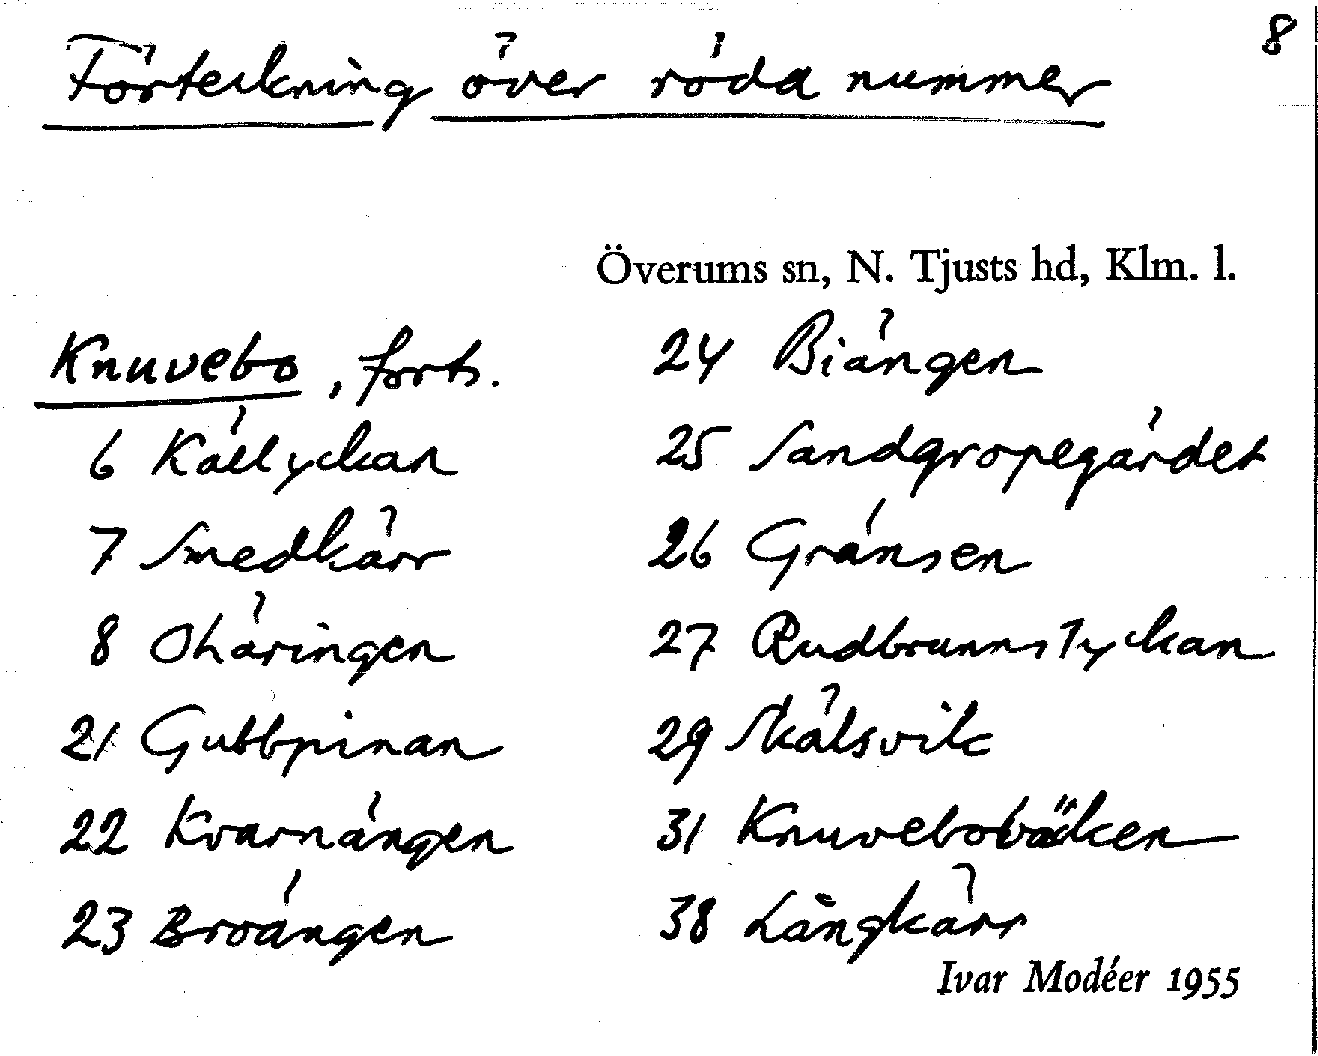 8
Förteckning över röda nummer
Överums sn, N. Tjusts hd, Klm. l.
Knuvebo, forts.
6 Källyckan
7 Smedkärr
8 Ohäringen
21 Gubbpinan
22 Kvarnängen
23 Broängen
24 Biängen
25 Sandgropegärdet
26 Gränsen
27 Rudbrunnslyckan
29 Skälsvik
31 Knuvebobäcken
38 Långkärr
Ivar Modéer 1955